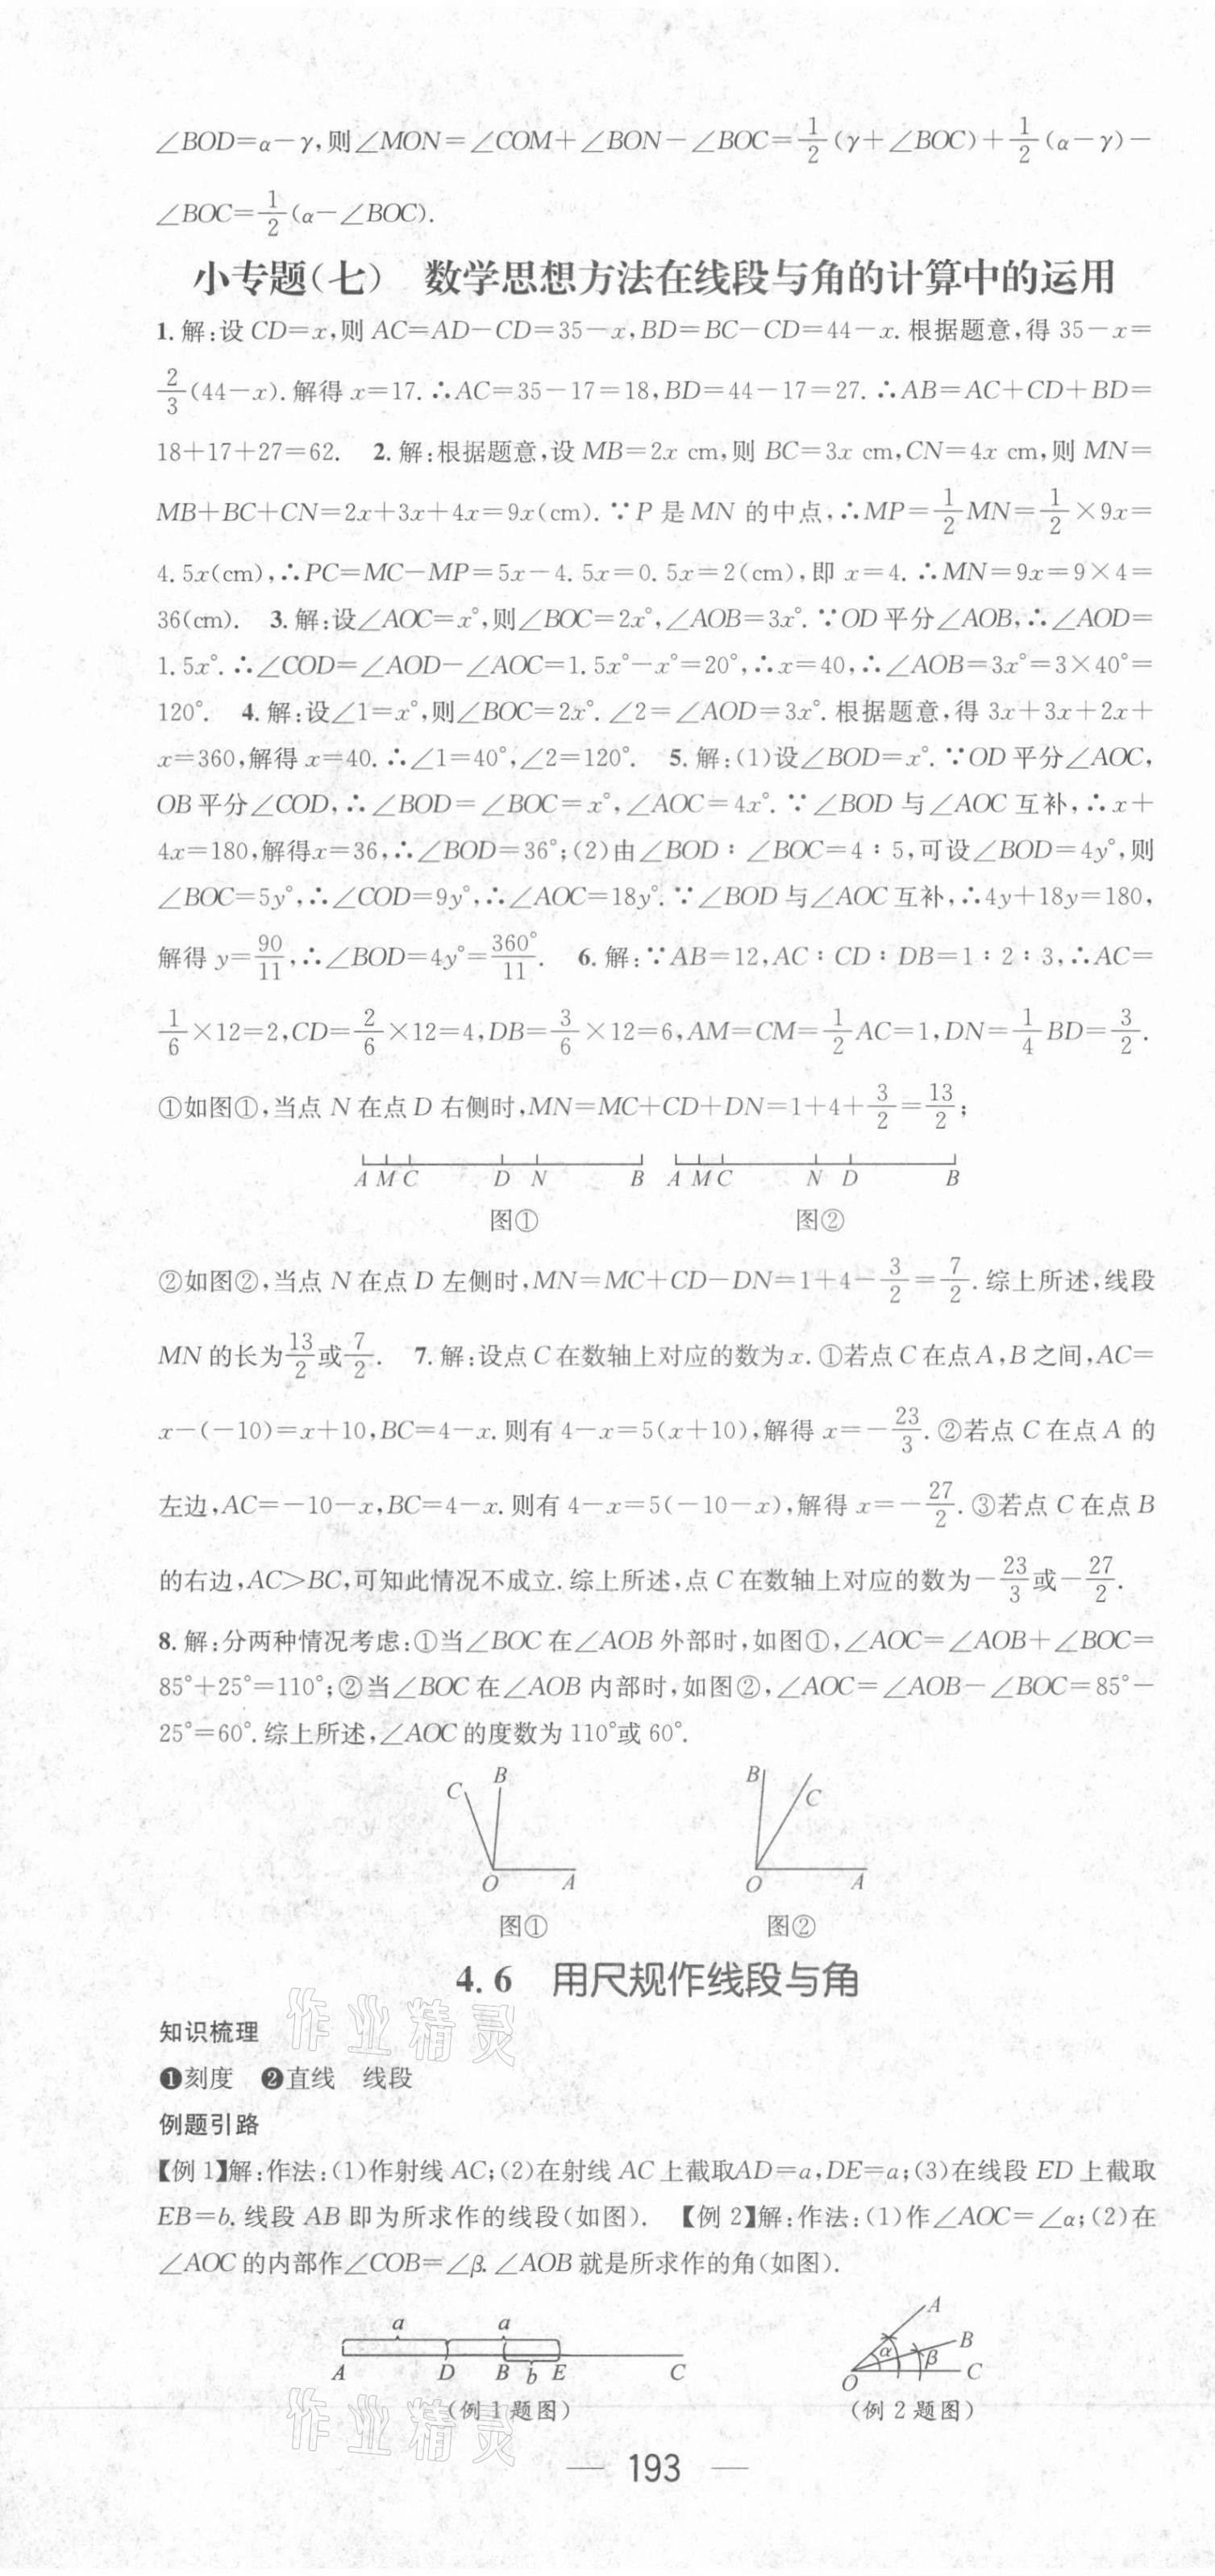 ∠BOD=α-γ,则∠MON=∠COM+∠BON-∠BOC=1/2(γ+∠BOC)+1/2(α-γ)-
∠BOC=1/2(α-∠BOC).
小专题(七) 数学思想方法在线段与角的计算中的运用
1.解:设CD=x,则AC=AD-CD=35-x,BD=BC-CD=44-x.根据题意,得35-x=
2/3(44-x).解得x=17.∴AC=35-17=18,BD=44-17=27.∴AB=AC+CD+BD=
18+17+27=62. 2.解:根据题意,设MB=2x cm,则BC=3x cm,CN=4x cm,则MN=
MB+BC+CN=2x+3x+4x=9x(cm).∵P是MN的中点,∴MP=1/2MN=1/2×9x=
4.5x(cm),∴PC=MC-MP=5x-4.5x=0.5x=2(cm),即x=4.∴MN=9x=9×4=
36(cm). 3.解:设∠AOC=x°,则∠BOC=2x°,∠AOB=3x°.∵OD平分∠AOB,∴∠AOD=
1.5x°.∴∠COD=∠AOD-∠AOC=1.5x°-x°=20°,∴x=40,∴∠AOB=3x°=3×40°=
120°. 4.解:设∠1=x°,则∠BOC=2x°.∠2=∠AOD=3x°.根据题意,得3x+3x+2x+
x=360,解得x=40.∴∠1=40°,∠2=120°. 5.解:(1)设∠BOD=x°.∵OD平分∠AOC,
OB平分∠COD,∴∠BOD=∠BOC=x°,∠AOC=4x°.∵∠BOD与∠AOC互补,∴x+
4x=180,解得x=36,∴∠BOD=36°;(2)由∠BOD:∠BOC=4:5,可设∠BOD=4y°,则
∠BOC=5y°,∴∠COD=9y°,∴∠AOC=18y°.∵∠BOD与∠AOC互补,∴4y+18y=180,
解得y=90/11,∴∠BOD=4y°=360°/11. 6.解:∵AB=12,AC:CD:DB=1:2:3,∴AC=
1/6×12=2,CD=2/6×12=4,DB=3/6×12=6,AM=CM=1/2AC=1,DN=1/4BD=3/2.
①如图①,当点N在点D右侧时,MN=MC+CD+DN=1+4+3/2=13/2;
A M C D N B A M C N D B
图① 图②
②如图②,当点N在点D左侧时,MN=MC+CD-DN=1+4-3/2=7/2.综上所述,线段
MN的长为13/2或7/2. 7.解:设点C在数轴上对应的数为x.①若点C在点A,B之间,AC=
x-(-10)=x+10,BC=4-x.则有4-x=5(x+10),解得x=-23/3.②若点C在点A的
左边,AC=-10-x,BC=4-x.则有4-x=5(-10-x),解得x=-27/2.③若点C在点B
的右边,AC>BC,可知此情况不成立.综上所述,点C在数轴上对应的数为-23/3或-27/2.
8.解:分两种情况考虑:①当∠BOC在∠AOB外部时,如图①,∠AOC=∠AOB+∠BOC=
85°+25°=110°;②当∠BOC在∠AOB内部时,如图②,∠AOC=∠AOB-∠BOC=85°-
25°=60°.综上所述,∠AOC的度数为110°或60°.
C B B C
O A O A
图① 图②
4.6 用尺规作线段与角
知识梳理
❶刻度 ❷直线 线段
例题引路
【例1】解:作法:(1)作射线AC;(2)在射线AC上截取AD=a,DE=a;(3)在线段ED上截取
EB=b.线段AB即为所求作的线段(如图). 【例2】解:作法:(1)作∠AOC=∠α;(2)在
∠AOC的内部作∠COB=∠β.∠AOB就是所求作的角(如图).
a a A B
A D B b E C O α β C
(例1题图) (例2题图)
作业精灵
作业精灵
— 193 —